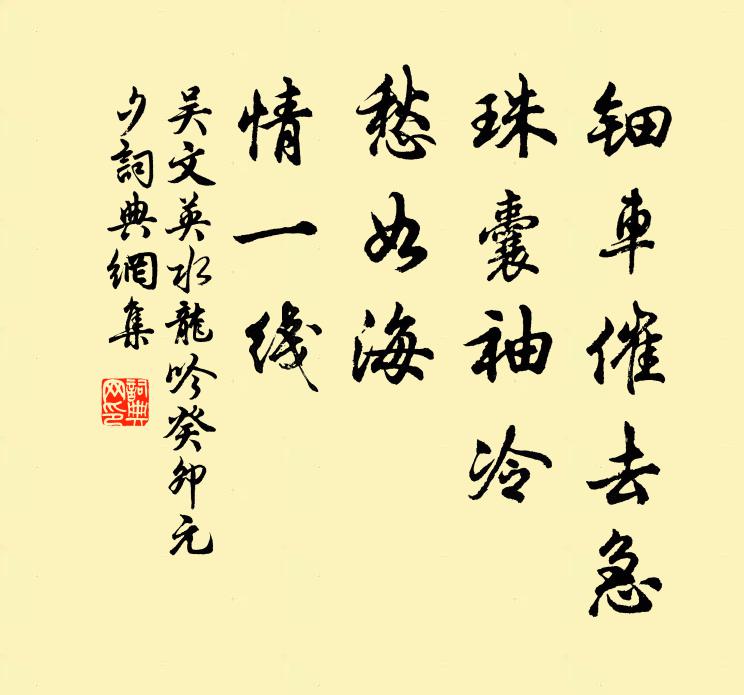 钿車催去急
珠囊袖冷
愁如海
情一綫
吴文英水龍吟癸卯元
夕詞典網集
詞典網印